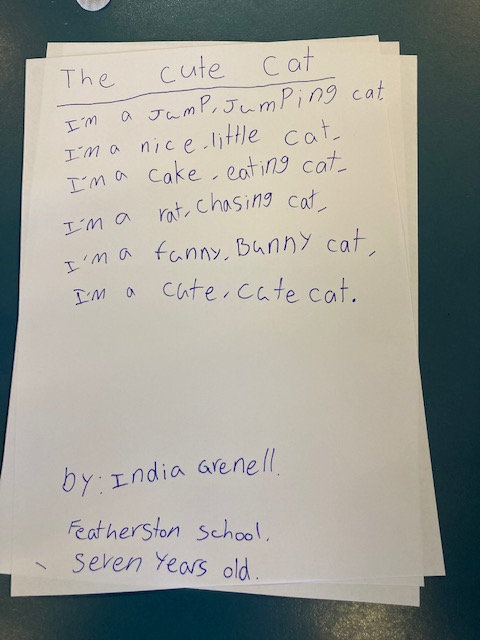 The cute cat
I'm a Jump, Jumping cat
I'm a nice, little cat,
I'm a cake, eating cat,
I'm a rat, chasing cat,
I'm a funny, Bunny cat,
I'm a cute, cute cat.
by: India Grenell.
Featherston school.
Seven Years old.